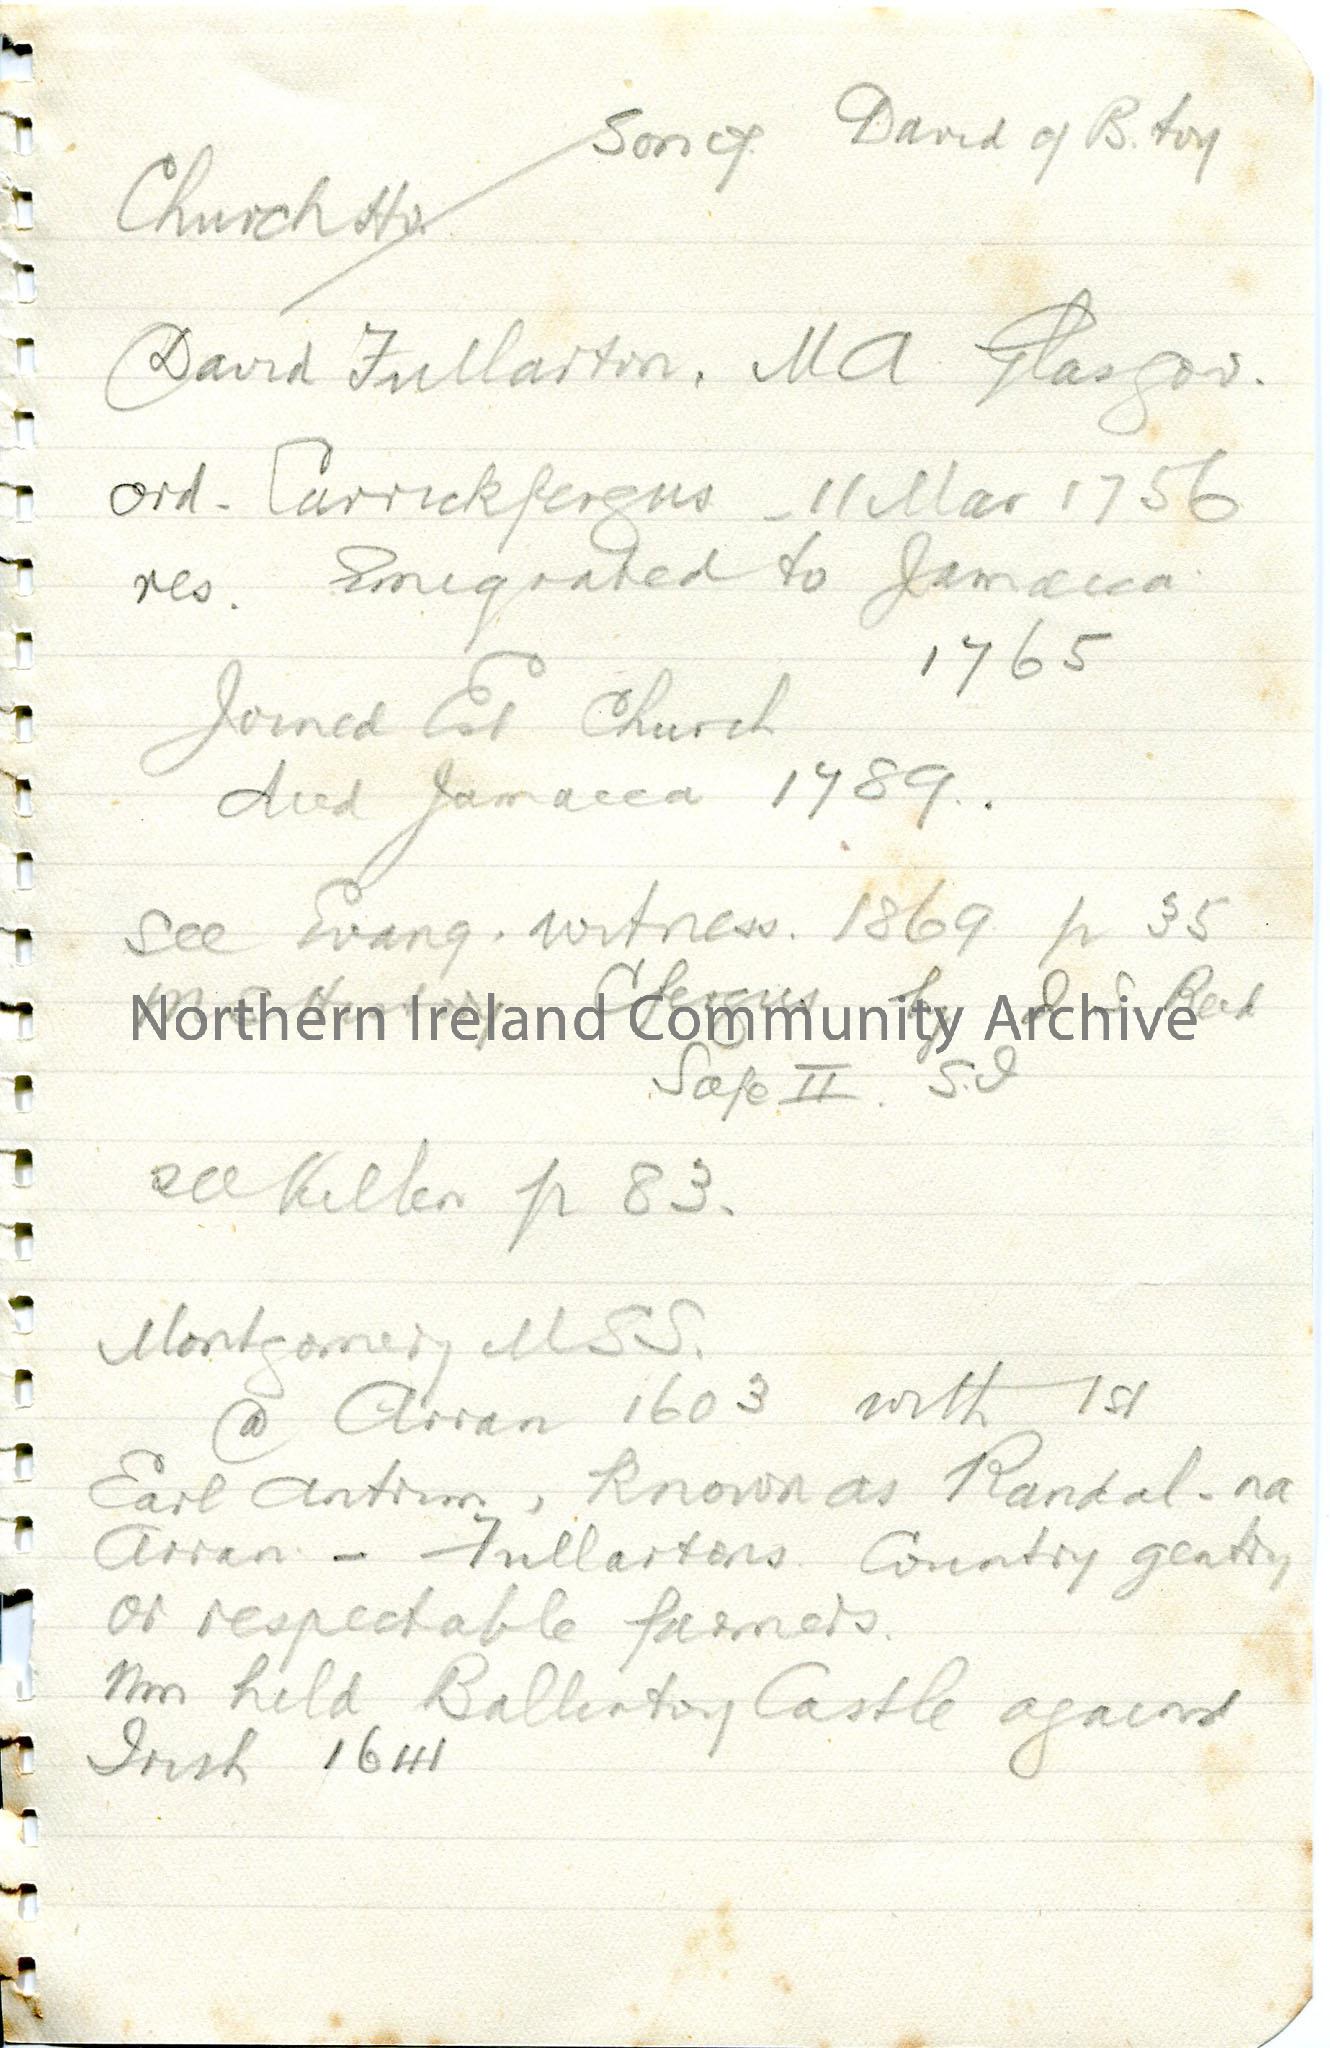 Son of David of B.toy
Church Ho.
David Fullarton. MA Glasgow.
ord - Carrickfergus - 11 Mar 1756
res. Emigrated to Jamaica
1765
Joined Est Church
died Jamaica 1789..
see Evang. witness. 1869 p 35
MS History Cfergus by J S Reid
Northern Ireland Community Archive
Safe II. S.J
see Killen p 83.
Montgomery MSS.
@ Arran 1603 with 1st
Earl Antrim, known as Randal - na
Arran - Fullartons Country gentry
or respectable farmers.
Wm held Ballintoy Castle against
Irish 1641